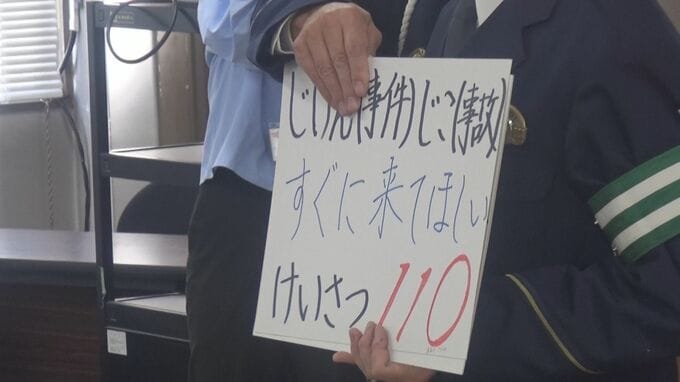 じけん(事件)じこ(事故)
すぐに来てほしい
けいさつ110